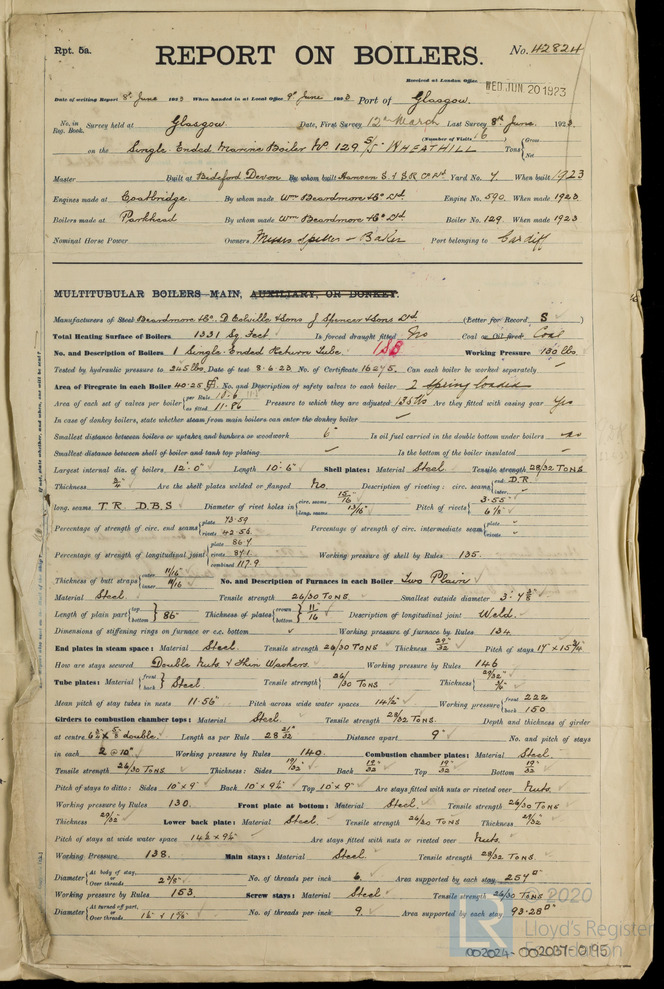 Rpt. 5a.
REPORT ON BOILERS.
No. 42824
Received at London Office
WED. JUN. 20 1923
Date of writing Report 8th June 1923 When handed in at Local Office 9th June 1923 Port of Glasgow.
No. in Reg. Book. Survey held at Glasgow. Date, First Survey 12th March Last Survey 8th June 1923
(Number of Visits 16
on the Single Ended Marine Boiler No 129 S/S "WHEATHILL Tons { Gross Net
Master Built at Bideford Devon By whom built Hansen S. & S. R. Co Ltd. Yard No. 7 When built 1923
Engines made at Coatbridge. By whom made Wm Beardmore & Co Ltd. Engine No. 590 When made 1923
Boilers made at Parkhead By whom made Wm Beardmore & Co Ltd. Boiler No. 129 When made 1923
Nominal Horse Power Owners Messrs - Baker Port belonging to Cardiff
MULTITUBULAR BOILERS MAIN, AUXILIARY, OR DONKEY.
Manufacturers of Steel Beardmore & Co. D Colville & Sons J Spencer & Sons Ltd. (Letter for Record S )
Total Heating Surface of Boilers 1331 Sq Feet Is forced draught fitted No Coal or Oil fired Coal
No. and Description of Boilers 1 Single Ended Return Tube. 1SB Working Pressure 130 lbs
Tested by hydraulic pressure to 245 lbs. Date of test 8.6.23 No. of Certificate 16245. Can each boiler be worked separately
Area of Firegrate in each Boiler 40.25 No. and Description of safety valves to each boiler 2 Spring Loaded
Area of each set of valves per boiler { per Rule as fitted 11.86 Pressure to which they are adjusted 135 lbs Are they fitted with easing gear Yes
In case of donkey boilers, state whether steam from main boilers can enter the donkey boiler
Smallest distance between boilers or uptakes and bunkers or woodwork 6" Is oil fuel carried in the double bottom under boilers no
Smallest distance between shell of boiler and tank top plating Is the bottom of the boiler insulated
Largest internal dia. of boilers 12'-0" Length 10'-6" Shell plates: Material Steel Tensile strength 28/32 TONS
Thickness 3/4" Are the shell plates welded or flanged No Description of riveting: circ. seams { end D.R inter.
long. seams T.R. D.B.S Diameter of rivet holes in { circ. seams 15/16 long. seams 13/16 Pitch of rivets { 3.55" 6 1/8"
Percentage of strength of circ. end seams { plate 73.59 rivets 42.56 Percentage of strength of circ. intermediate seam { plate rivets
Percentage of strength of longitudinal joint { plate 86.7 rivets 87.1 combined 117.9 Working pressure of shell by Rules 135.
Thickness of butt straps { outer 11/16 inner 11/16 No. and Description of Furnaces in each Boiler Two Plain
Material Steel. Tensile strength 26/30 TONS Smallest outside diameter 3'-4 3/8"
Length of plain part { top bottom 86" Thickness of plates { crown bottom 11/16 Description of longitudinal joint Weld.
Dimensions of stiffening rings on furnace or c.c. bottom Working pressure of furnace by Rules 134
End plates in steam space: Material Steel Tensile strength 26/30 TONS Thickness 29/32 Pitch of stays 17" x 15 3/4"
How are stays secured Double Nuts & thin Washers. Working pressure by Rules 146
Tube plates: Material { front back Steel Tensile strength { 26/30 TONS Thickness { 29/32
Mean pitch of stay tubes in nests 11.56" Pitch across wide water spaces 14 1/2" Working pressure { front 222 back 150
Girders to combustion chamber tops: Material Steel. Tensile strength 28/32 TONS. Depth and thickness of girder
at centre double. Length as per Rule 28 21/32 Distance apart 9" No. and pitch of stays
in each 2 @ 10" Working pressure by Rules 140. Combustion chamber plates: Material Steel.
Tensile strength 26/30 TONS Thickness: Sides 19/32 Back 19/32 Top 19/32 Bottom 19/32
Pitch of stays to ditto: Sides 10" x 9" Back 10" x 9 1/2" Top 10" x 9" Are stays fitted with nuts or riveted over Nuts.
Working pressure by Rules 130. Front plate at bottom: Material Steel. Tensile strength 26/30 TONS
Thickness 29/32 Lower back plate: Material Steel. Tensile strength 26/30 TONS Thickness 29/32
Pitch of stays at wide water space 14 1/2 x 9 1/2" Are stays fitted with nuts or riveted over Nuts.
Working Pressure 138. Main stays: Material Steel Tensile strength 28/32 TONS.
Diameter { At body of stay, or Over threads 2 5/8" No. of threads per inch 6. Area supported by each stay 257
Working pressure by Rules 153 Screw stays: Material Steel Tensile strength 26/30 TONS
Diameter { At turned off part, or Over threads No. of threads per inch 9. Area supported by each stay 93.28
© 2020
LR
Lloyd's Register
Foundation
002024-002037-0195